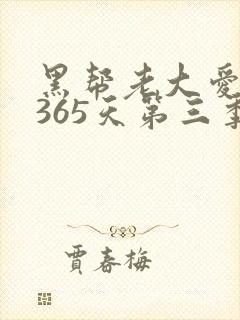 黑帮老大爱
365天第三季
贾春梅